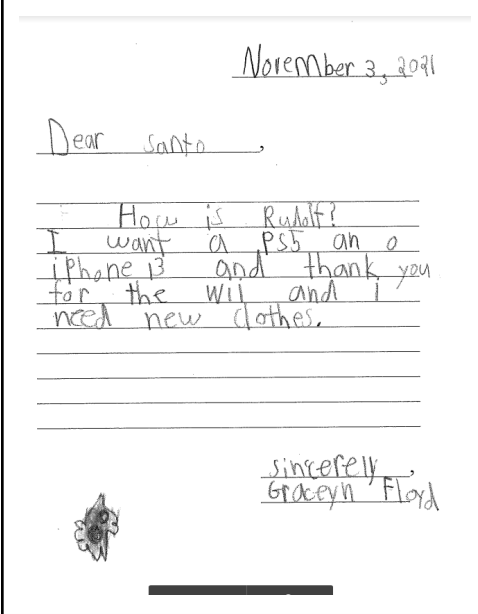 November 3, 2021
Dear Santa,
How is Rudolf?
I want a PS5 an a
iPhone 13 and thank you
for the Wii and i
need new clothes.
sincerely,
Graceyn Floyd